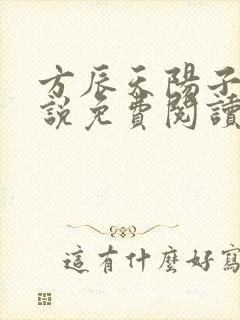 方辰天陽子
説免費閱讀
這有什麼好寫